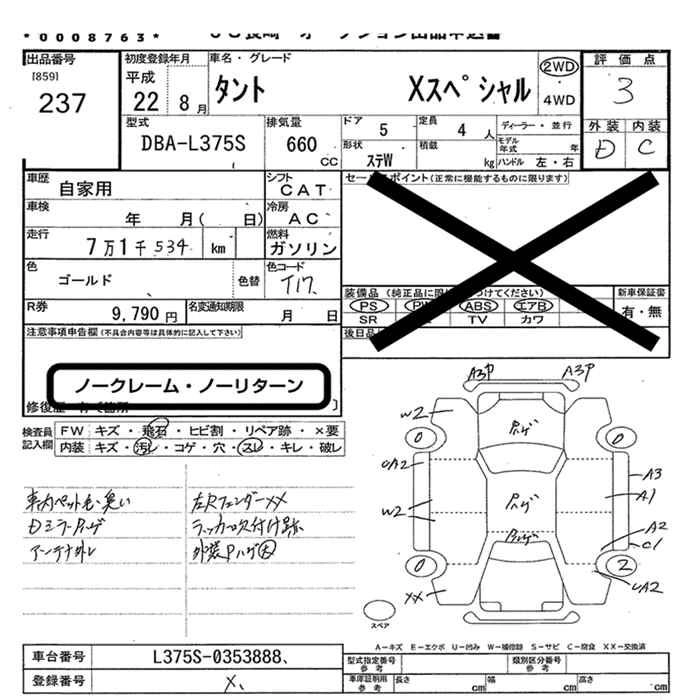 *0008763*
出品番号
[859]
237
初度登録年月
平成
22 8月
車名・グレード
タント Xスペシャル
2WD
・
4WD
評価点
3
外装 内装
D C
型式
DBA-L375S
排気量
660
CC
ドア 5
定員 4 人
形状 ステW
積載 kg
ディーラー・並行
モデル年式 年
ハンドル 左・右
車歴 自家用
シフト CAT
車検 年 月( 日)
冷房 AC
走行 7万1千534 km
燃料 ガソリン
色 ゴールド 色替
色コード T17
R券 9,790円
名変通知期限 月 日
セールスポイント(正常に機能するものに限ります)
装備品
PS PW ABS エアB
SR TV カワ
新車保証書
有・無
後日品
注意事項申告欄(不具合内容等は具体的に記入して下さい)
ノークレーム・ノーリターン
検査員
記入欄
FW キズ・飛石・ヒビ割・リペア跡・×要
内装 キズ・汚レ・コゲ・穴・スレ・キレ・破レ
車内ペット毛・臭い
Dミラーハゲ
アンテナ外レ
左Rフェンダーxx
ラッカー吹付け跡
外装Pハゲ大
A3P A3P
W2
Pハゲ
0 0
UA2
A3
Pハゲ
A1
W2
Pハゲ
A2
C1
0 2
XX
UA2
スペア
A－キズ E－エクボ U－凹み W－補修跡 S－サビ C－腐食 XX－交換済
車台番号 L375S-0353888
型式指定番号
参考
類別区分番号
参考
登録番号
車庫証明用
参考
長さ cm
幅 cm
高さ cm